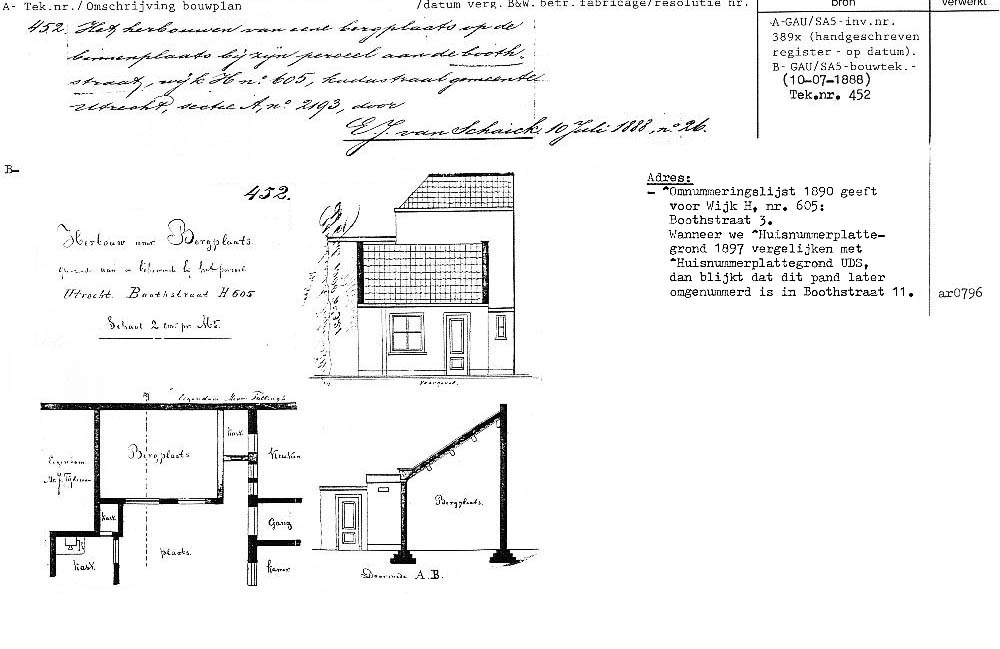 A- Tek.nr./Omschrijving bouwplan
/datum verg. B&W. betr. fabricage/resolutie nr.
bron
verwerkt
452. Het herbouwen van eene bergplaats op de
binnenplaats bij zijn perceel aan de booth-
straat, wijk H no. 605, kadastraal gemeente
Utrecht, sectie A, no. 2193, door
E.J. van Schaick 10 Juli 1888, no 26.
A-GAU/SA5-inv.nr.
389x (handgeschreven
register - op datum).
B- GAU/SA5-bouwtek.-
(10-07-1888)
Tek.nr. 452
B-
452.
Herbouw eener Bergplaats.
bij het perceel
Utrecht. Boothstraat H 605
Schaal 2 cm. pr. M5.
Voorgevel.
Adres:
- ^Omnummeringslijst 1890 geeft
voor Wijk H, nr. 605:
Boothstraat 3.
Wanneer we ^Huisnummerplatte-
grond 1897 vergelijken met
^Huisnummerplattegrond UDS,
dan blijkt dat dit pand later
omgenummerd is in Boothstraat 11.
ar0796
Eigendom
Bergplaats
Kast
Keuken
Eigendom
Kast
Gang
plaats.
Kast.
Kamer
Bergplaats.
Doorsnede A.B.